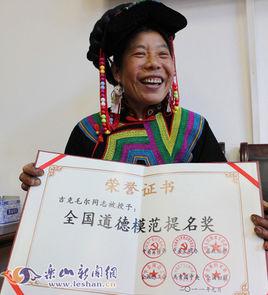 荣誉证书
吉克毛尔同志被授予：
全国道德模范提名奖
二〇一一年九月
乐山新闻网
www.leshan.cn